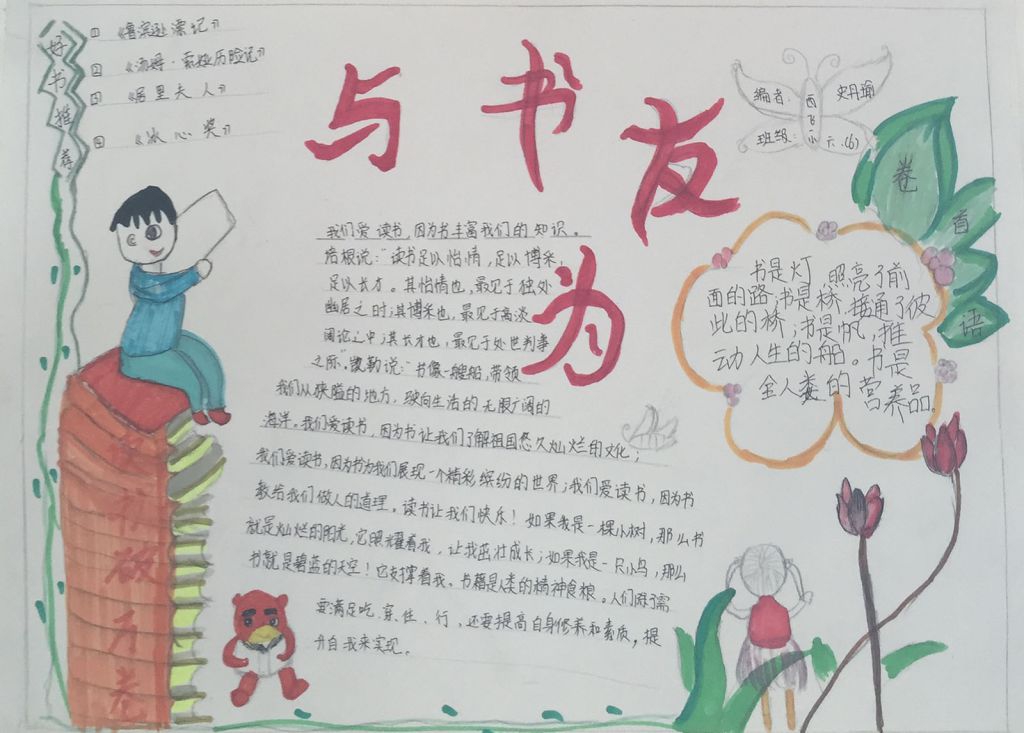 好书推荐
① 《鲁滨逊漂记》
② 《汤姆·索娅历险记》
③ 《居里夫人》
④ 《冰心奖》
与书友
为
编者：史丹瑜
西飞小
班级：六.(6)
卷首语
书是灯,照亮了前
面的路;书是桥,接通了彼
此的桥;书是帆,推
动人生的船。书是
全人类的营养品。
我们爱读书,因为书丰富我们的知识。
培根说:“读书足以怡情,足以博采,
足以长才。其怡情也,最见于独处
幽居之时;其博采也,最见于高谈
阔论之中;其长才也,最见于处世判事
之际。”凯勒说:“书像一艘船,带领
我们从狭隘的地方,驶向生活的无限广阔的
海洋。我们爱读书,因为书让我们了解祖国悠久灿烂的文化;
我们爱读书,因为书为我们展现一个精彩缤纷的世界;我们爱读书,因为书
教给我们做人的道理。读书让我们快乐!如果我是一棵小树,那么书
就是灿烂的阳光,它照耀着我,让我茁壮成长;如果我是一只小鸟,那么
书就是碧蓝的天空!它支撑着我。书籍是人类的精神食粮。人们除了需
要满足吃、穿、住、行,还要提高自身修养和素质,提
升自我来实现。
破万卷